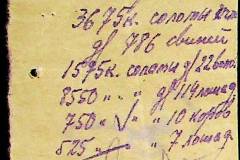 3675к. соломы для
д/ 786 свиней
1575к. соломы д/ 22 вол.
3550 " " д/ 119 лошад
750 " " 10 коров
525 " " 7 лошад